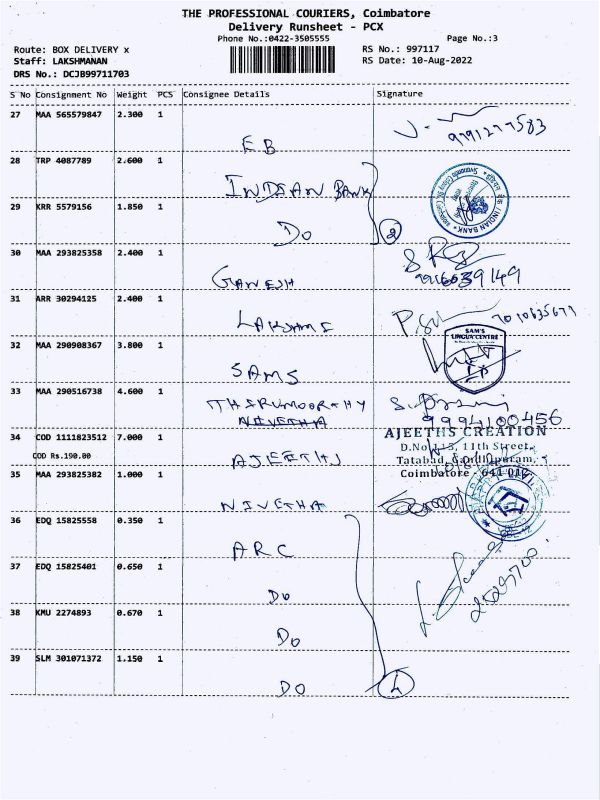 THE PROFESSIONAL COURIERS, Coimbatore
Delivery Runsheet - PCX
Phone No.:0422-3505555
Page No.:3
Route: BOX DELIVERY x
RS No.: 997117
Staff: LAKSHMANAN
RS Date: 10-Aug-2022
DRS No.: DCJB99711703
S No Consignment No Weight PCS Consignee Details Signature
27 MAA 565579847 2.300 1
EB 9791277583
28 TRP 4087789 2.600 1
INDIAN BANK
29 KRR 5579156 1.850 1
Do 2
30 MAA 293825358 2.400 1
GANESH
31 ARR 30294125 2.400 1
LAKSHMI 7010835671
32 MAA 290908367 3.800 1
SAMS SAM'S LINGUA CENTRE
33 MAA 290516738 4.600 1
THIRUMOORTHY
NIVETHA 9994100456
34 COD 1111823512 7.000 1 AJEETHS CREATION
COD Rs.190.00 AJEETHS D.No.113, 11th Street,
Tatabad, Gandhipuram,
35 MAA 293825382 1.000 1 Coimbatore - 641 012
NIVETHA
36 EDQ 15825558 0.350 1
ARC
37 EDQ 15825401 0.650 1
Do
38 KMU 2274893 0.670 1
Do
39 SLM 301071372 1.150 1
Do 4